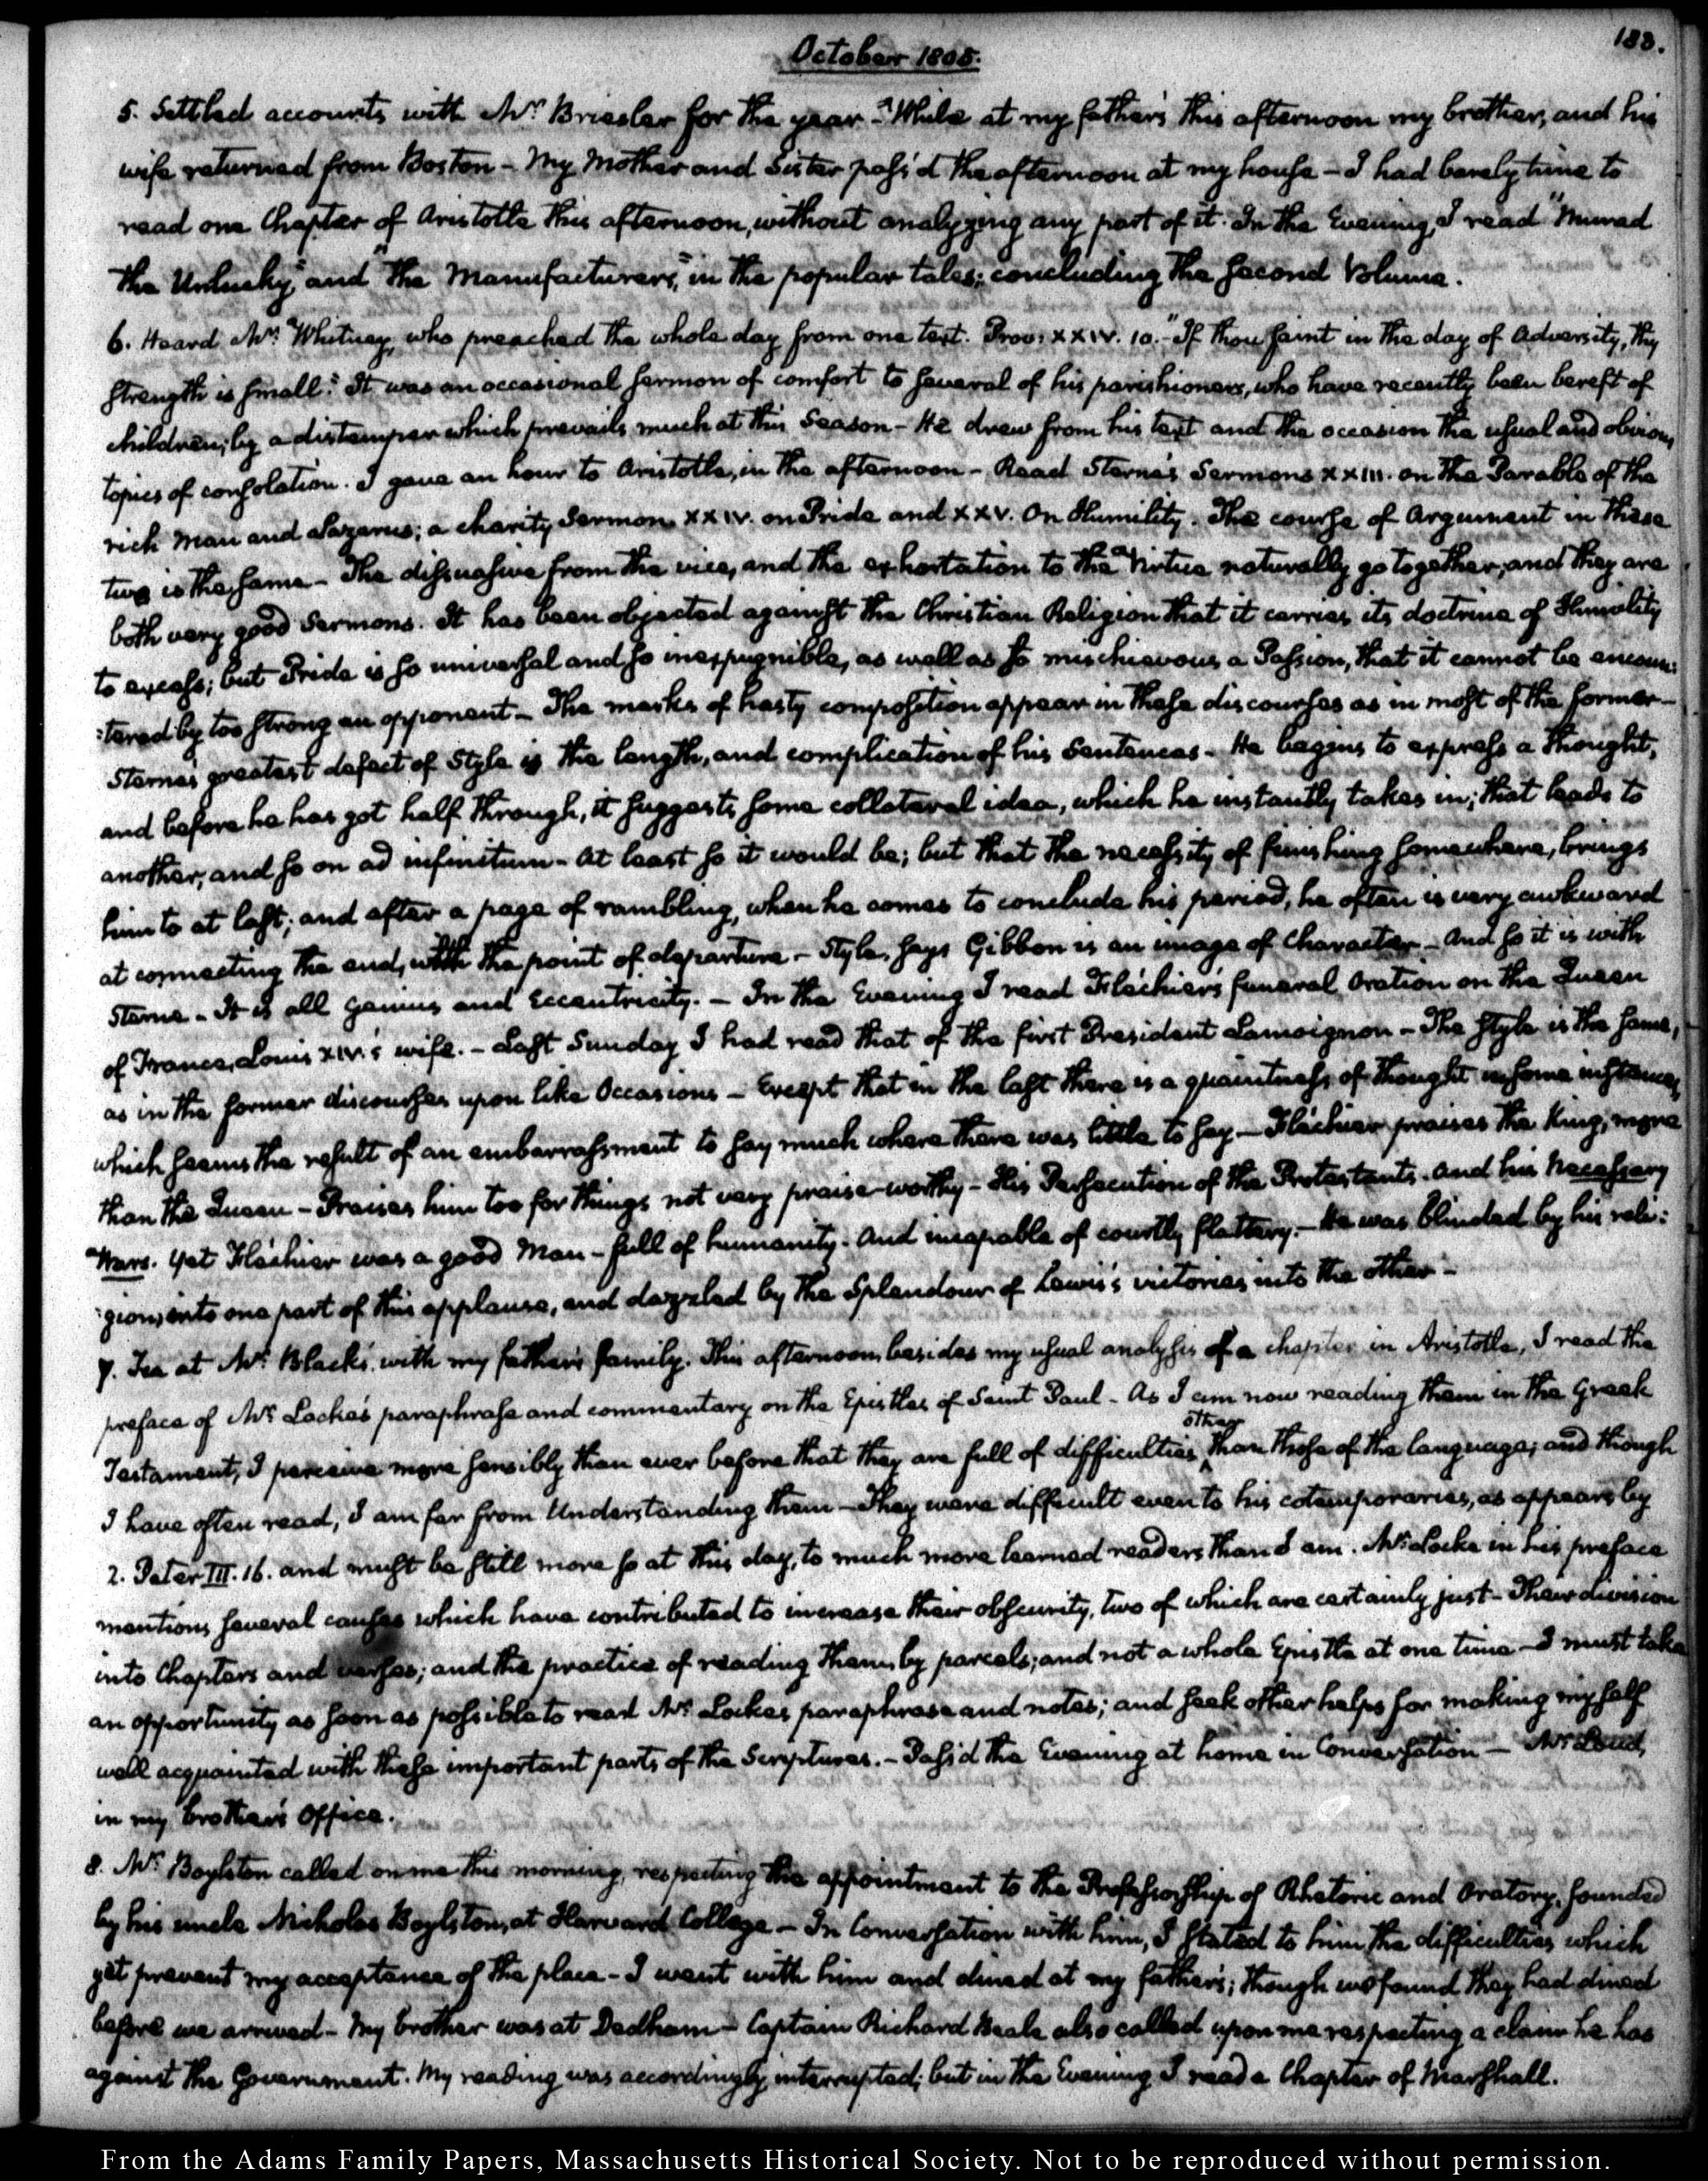 183.
October 1805.
5. Settled accounts with Mr. Briesler for the year - While at my father's this afternoon my brother, and his
wife returned from Boston - My Mother and Sister pass'd the afternoon at my house - I had barely time to
read one Chapter of Aristotle this afternoon, without analyzing any part of it. In the Evening, I read "Murad
the Unlucky," and "the Manufacturers," in the popular tales; concluding the second Volume.
6. Heard Mr. Whitney, who preached the whole day from one text. Prov: XXIV. 10. "If thou faint in the day of Adversity, thy
strength is small." It was an occasional sermon of comfort to several of his parishioners, who have recently been bereft of
children, by a distemper which prevails much at this Season - He drew from his text and the occasion the usual and obvious
topics of consolation. I gave an hour to Aristotle, in the afternoon - Read Sterne's Sermons XXIII. on the Parable of the
rich Man and Lazarus; a charity Sermon. XXIV. on Pride and XXV. On Humility. The course of Argument in these
two is the same - The dissuasive from the vice, and the exhortation to the Virtue naturally go together, and they are
both very good Sermons. It has been objected against the Christian Religion that it carries its doctrine of Humility
to excess; but Pride is so universal and so inexpugnible, as well as so mischievous a Passion, that it cannot be encoun:
:tered by too strong an opponent - The marks of hasty composition appear in these discourses as in most of the former -
Sterne's greatest defect of Style is the length, and complication of his Sentences - He begins to express a thought,
and before he has got half through, it suggests some collateral idea, which he instantly takes in; that leads to
another, and so on ad infinitum - At least so it would be; but that the necessity of finishing somewhere, brings
him to at last; and after a page of rambling, when he comes to conclude his period, he often is very awkward
at connecting the end, with the point of departure - Style, says Gibbon is an image of Character - And so it is with
Sterne - It is all genius and Eccentricity. - In the Evening I read Fléchier's funeral Oration on the Queen
of France, Louis XIV.'s wife. - Last Sunday I had read that of the first President Lamoignon - The style is the same,
as in the former discourses upon like Occasions - Except that in the last there is a quaintness of thought in some instances,
which seems the result of an embarrassment to say much where there was little to say - Fléchier praises the King, more
than the Queen - Praises him too for things not very praise-worthy - His Persecution of the Protestants. and his Necessary
Wars. Yet Fléchier was a good Man - full of humanity. And incapable of courtly flattery. - He was blinded by his reli:
:gion, into one part of this applause, and dazzled by the Splendour of Lewis's victories into the other -
7. Tea at Mr. Black's with my father's family. This afternoon, besides my usual analysis of a chapter in Aristotle, I read the
preface of Mr. Locke's paraphrase and commentary on the Epistles of Saint Paul - As I am now reading them in the Greek
Testament, I perceive more sensibly than ever before that they are full of difficulties other than those of the language; and though
I have often read, I am far from Understanding them - They were difficult even to his cotemporaries, as appears by
2. Peter III. 16. and must be still more so at this day, to much more learned readers than I am. Mr. Locke in his preface
mentions several causes which have contributed to increase their obscurity, two of which are certainly just - Their division
into Chapters and verses; and the practice of reading them, by parcels; and not a whole Epistle at one time - I must take
an opportunity as soon as possible to read Mr. Locke's paraphrase and notes; and seek other helps for making myself
well acquainted with these important parts of the Scriptures. - Pass'd the Evening at home in Conversation - Mr. Loud,
in my brother's Office.
8. Mr. Boylston called on me this morning, respecting the appointment to the Professorship of Rhetoric and Oratory, founded
by his uncle Nicholas Boylston, at Harvard College - In Conversation with him, I stated to him the difficulties which
yet prevent my acceptance of the place - I went with him and dined at my father's; though we found they had dined
before we arrived - My brother was at Dedham - Captain Richard Beale also called upon me respecting a claim he has
against the Government. My reading was accordingly interrupted; but in the Evening I read a Chapter of Marshall.
From the Adams Family Papers, Massachusetts Historical Society. Not to be reproduced without permission.